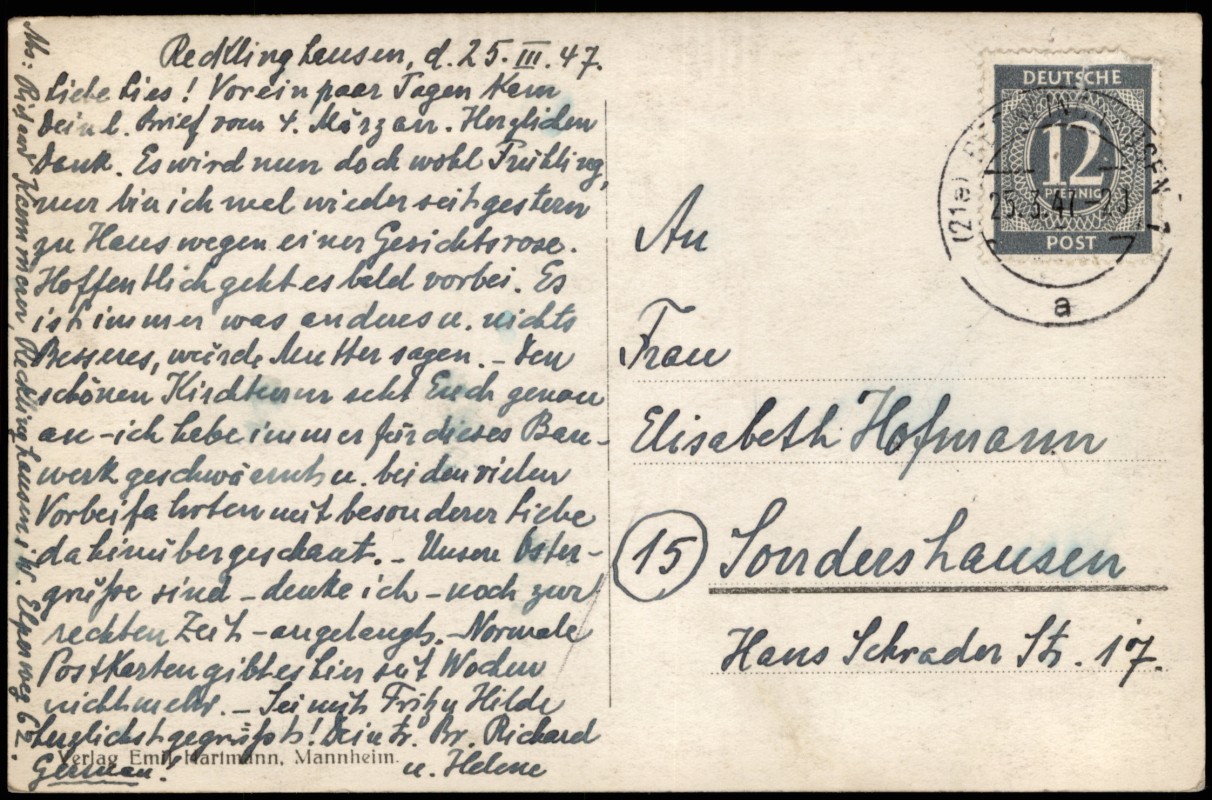 Recklinghausen, d. 25. III. 47.
Liebe Lies! Vor ein paar Tagen kam
Dein l. Brief vom 4. März an. Herzlichen
Dank. Es wird nun doch wohl Frühling,
nur bin ich mal wieder seit gestern
zu Haus wegen einer Gesichtsrose.
Hoffentlich geht es bald vorbei. Es
ist immer was anderes u. nichts
Besseres, würde Mutter sagen. – Den
schönen Kirchturm seht Euch genau
an – ich habe immer für dieses Bau-
werk geschwärmt u. bei den vielen
Vorbeifahrten mit besonderer Liebe
dahinübergeschaut. – Unsere Oster-
grüße sind – denke ich – noch zur
rechten Zeit – angelangt. – Normale
Postkarten gibt es hier seit Wochen
nicht mehr. – Sei mit Fritz u. Hilde
herzlichst gegrüßt! Dein tr. Br. Richard
u. Helene
German!
Verlag Emil Hartmann, Mannheim.
Recklinghausen i. W.
62.
DEUTSCHE
12
PFENNIG
POST
(21a)
25.3.47
a
An
Frau
Elisabeth Hofmann
(15) Sondershausen
Hans Schrader Str. 17.